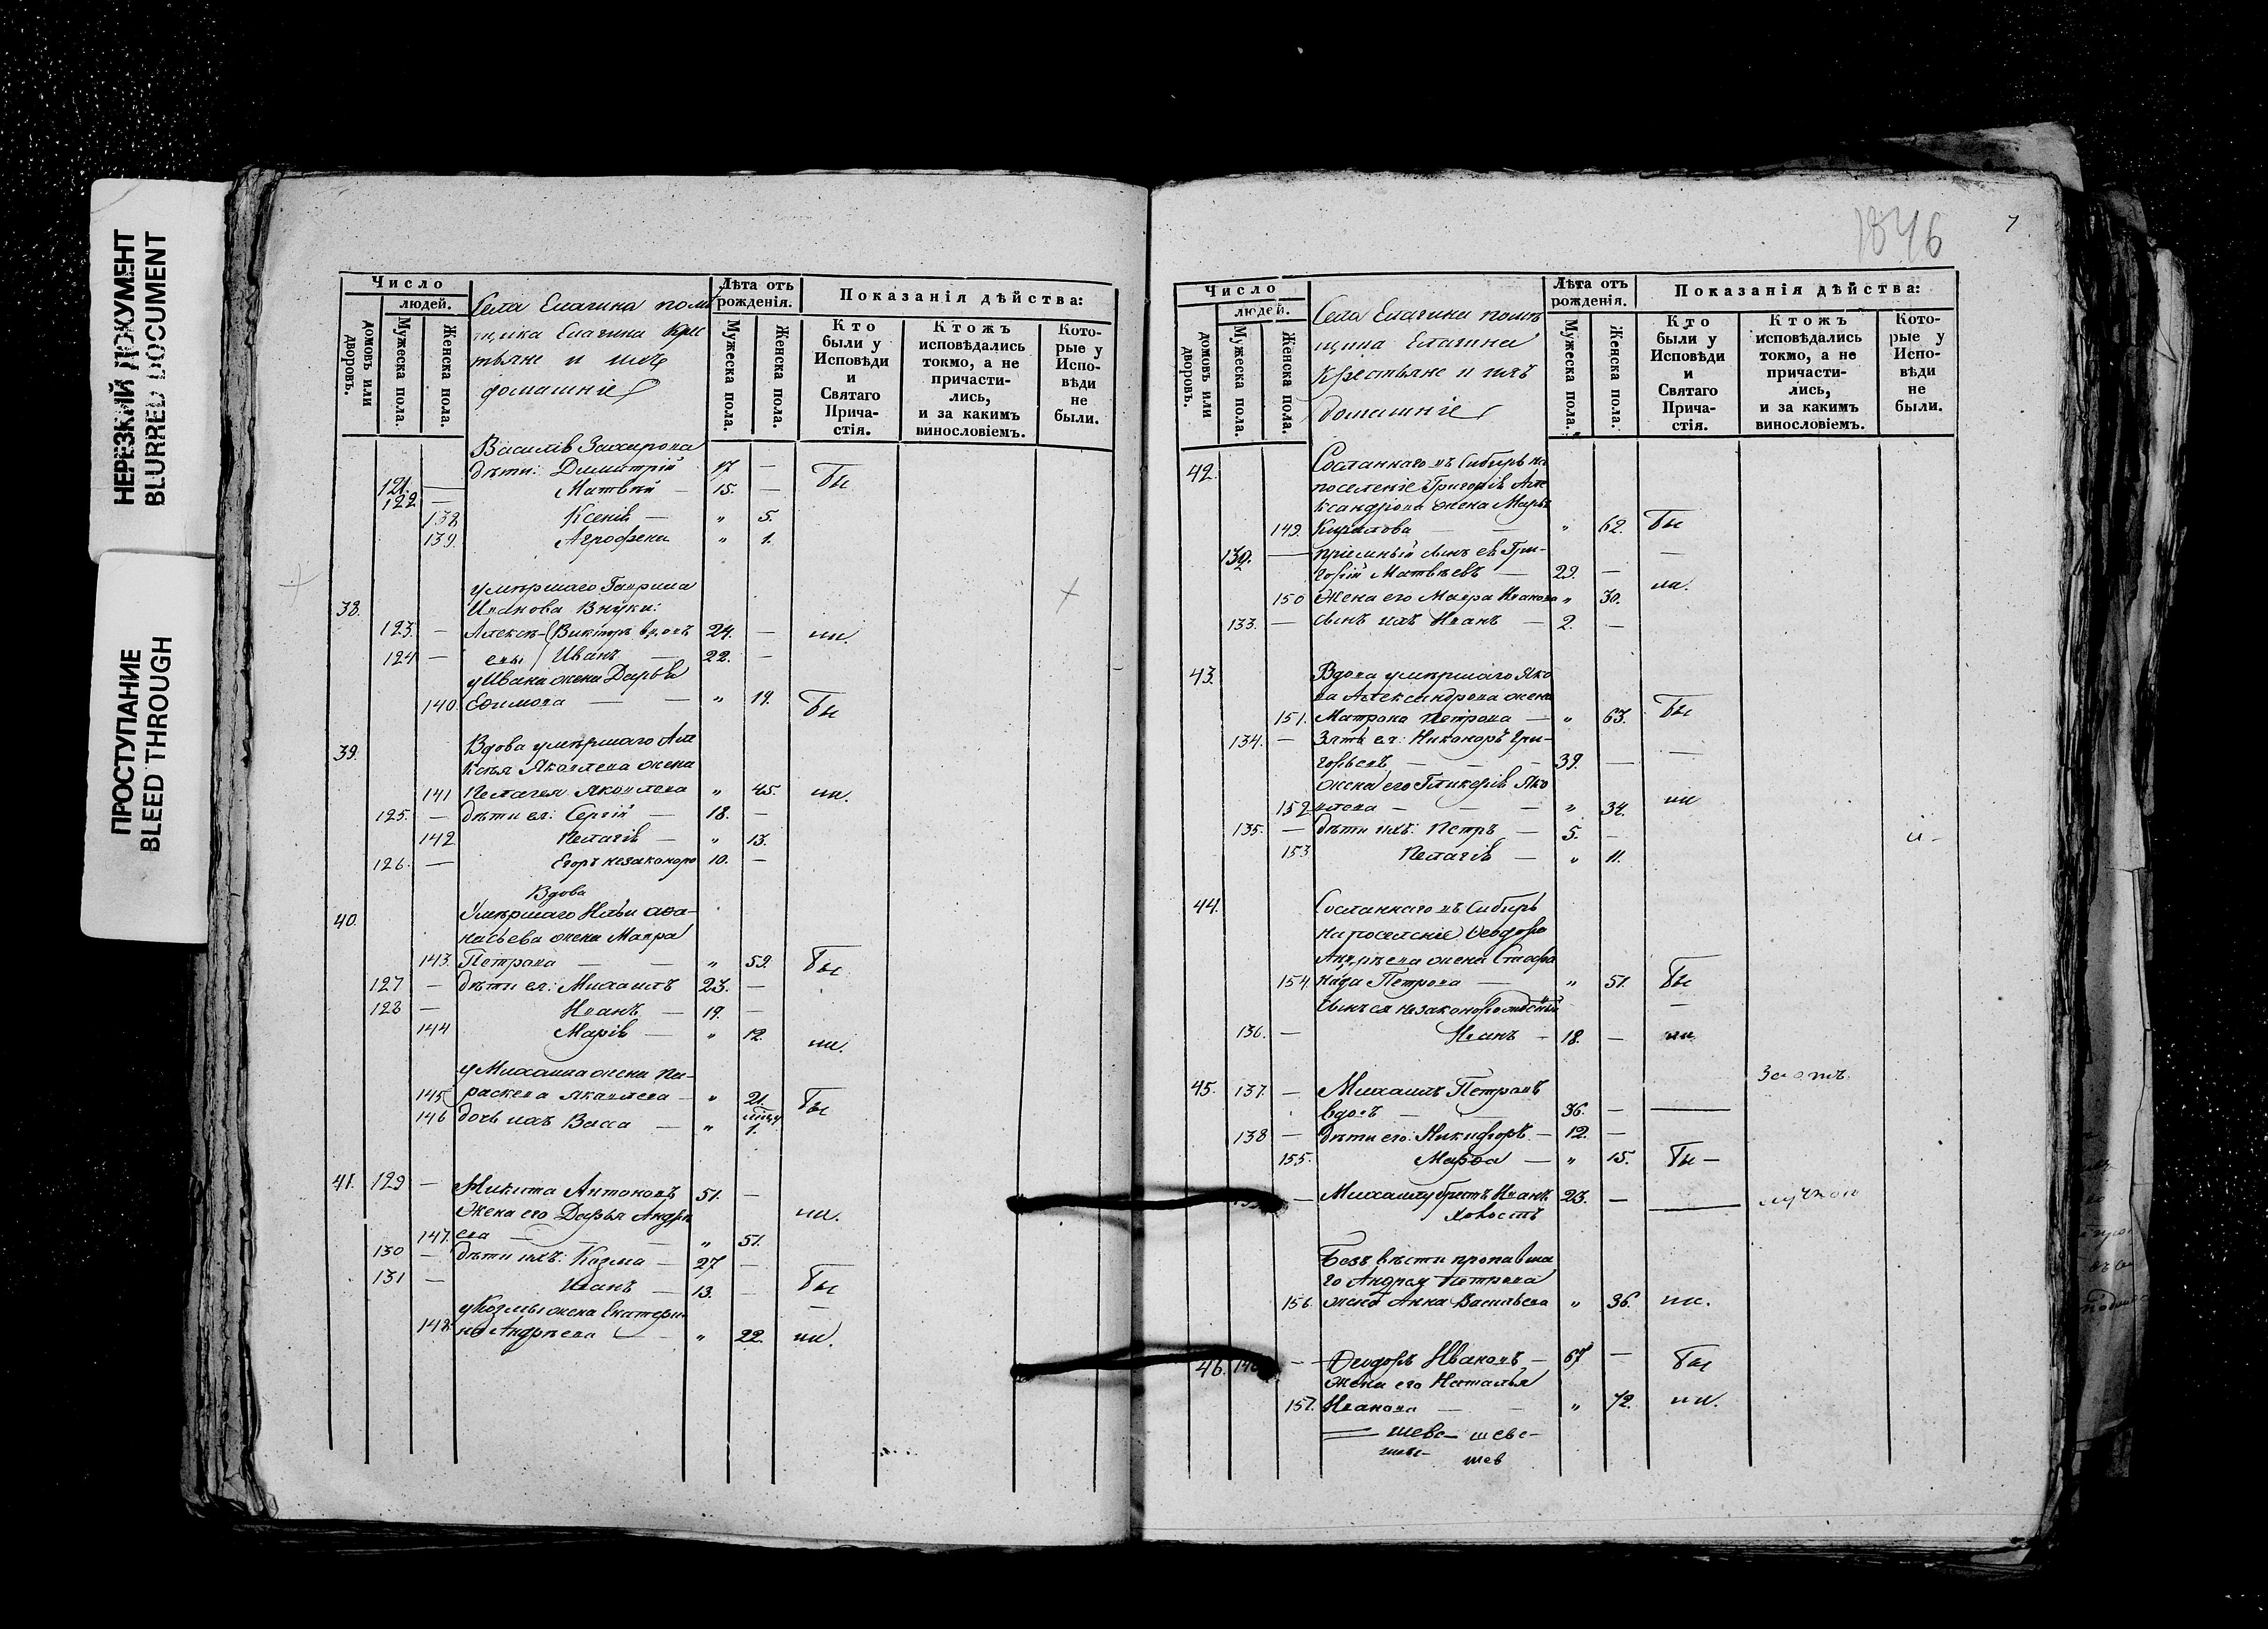 НЕРЕЗКИЙ ДОКУМЕНТ
BLURRED DOCUMENT
ПРОСТУПАНИЕ
BLEED THROUGH
Число
людей.
домовъ или дворовъ.
Мужеска пола.
Женска пола.
Села Елагина помѣ
щика Елагина кре
тьяне и ихъ
домашніе
Лѣта отъ рожденія.
Мужеска пола.
Женска пола.
Показанія дѣйства:
Кто были у Исповѣди и Святаго Прича-стія.
Ктожъ исповѣдались токмо, а не причасти-лись, и за какимъ винословіемъ.
Кото-рые у Испо-вѣди не были.
Василія Захарова
дѣти: Димитрій 17 —
121. — Матвѣй — 15. — Бы
122 —
138 Ксенія — " 5.
139. Агрофена " 1.
умершаго Гаврила
38. Иванова внуки:
123. — Алексѣ- Викторъ вдовъ 24. — ли.
124 — евы Иванъ — 22. —
у Ивана жена Дарья
140. Ефимова — — " 19. Бы
39. Вдова умершаго Але
ксѣя Яковлева жена
141 Пелагея Яковлева " 45. ли.
125. — дѣти ея: Сергій — 18. —
142 Пелагія — " 13.
126. — Егоръ незаконоро 10. —
Вдова
40. Умершаго Ильи Афа-
насьева жена Мавра
143. Петрова — — " 59. Бы
127 — дѣти ея: Михаилъ 23. —
128 — Иванъ — 19. —
144 Марія — " 12. ли.
у Михаила жена Па-
145 раскева Яковлева — " 21. Бы
146 дочь ихъ Васса — " 1.
41. 129 — Никита Антоновъ 51. —
Жена его Дарья Андре ли.
147. ева — — " 51.
130 — дѣти ихъ: Козма — 27 —
131 — Иванъ — 13. — Бы
у Козмы жена Екатери- —
148. на Андреева — " 22. ли.
1846
7
Число
людей.
домовъ или дворовъ.
Мужеска пола.
Женска пола.
Села Елагина помѣ
щика Елагина
Крестьяне и ихъ
домашніе
Лѣта отъ рожденія.
Мужеска пола.
Женска пола.
Показанія дѣйства:
Кто были у Исповѣди и Святаго Прича-стія.
Ктожъ исповѣдались токмо, а не причасти-лись, и за какимъ винословіемъ.
Кото-рые у Испо-вѣди не были.
42. Сосланнаго въ Сибирь на
поселеніе Григорія Але
ксандрова жена Марья
149. Кирилова — " 62. Бы
132. — приемный сынъ ея Гри- —
горій Матвѣевъ — 29. —
150 Жена его Мавра Иванова " 30. ли.
133. — сынъ ихъ Иванъ — 2. —
43. Вдова умершаго Яко
ва Александрова жена
151. Матрона Петрова — " 63. Бы
134. — Зять ея: Никоноръ Гри- —
горьевъ — — 39. —
жена его Гликерія Яко
152 влева — — " 34. ли
135. — дѣти ихъ: Петръ — 5. —
153 Пелагія — " 11.
44. Сосланнаго въ Сибирь
на поселеніе Феодора
Андреева жена Стефа
154 нида Петрова — " 51. Бы
Сынъ ея незаконорожденный —
136. — Иванъ — 18. — ли
45. 137. — Михаилъ Петровъ За отл.
вдовъ — — 36. — —
138 — дѣти его: Никифоръ — 12. —
155. Марфа — " 15. Бы —
— Михаилу братъ Иванъ 23. — — лучкою
холостъ
Безъ вѣсти пропавша
го Андрея Петрова
156. жена Анна Васильева " 36. ли.
46. — Феодоръ Ивановъ — 67 — Бы
Жена его Наталья
157. Иванова — — " 72. ли.